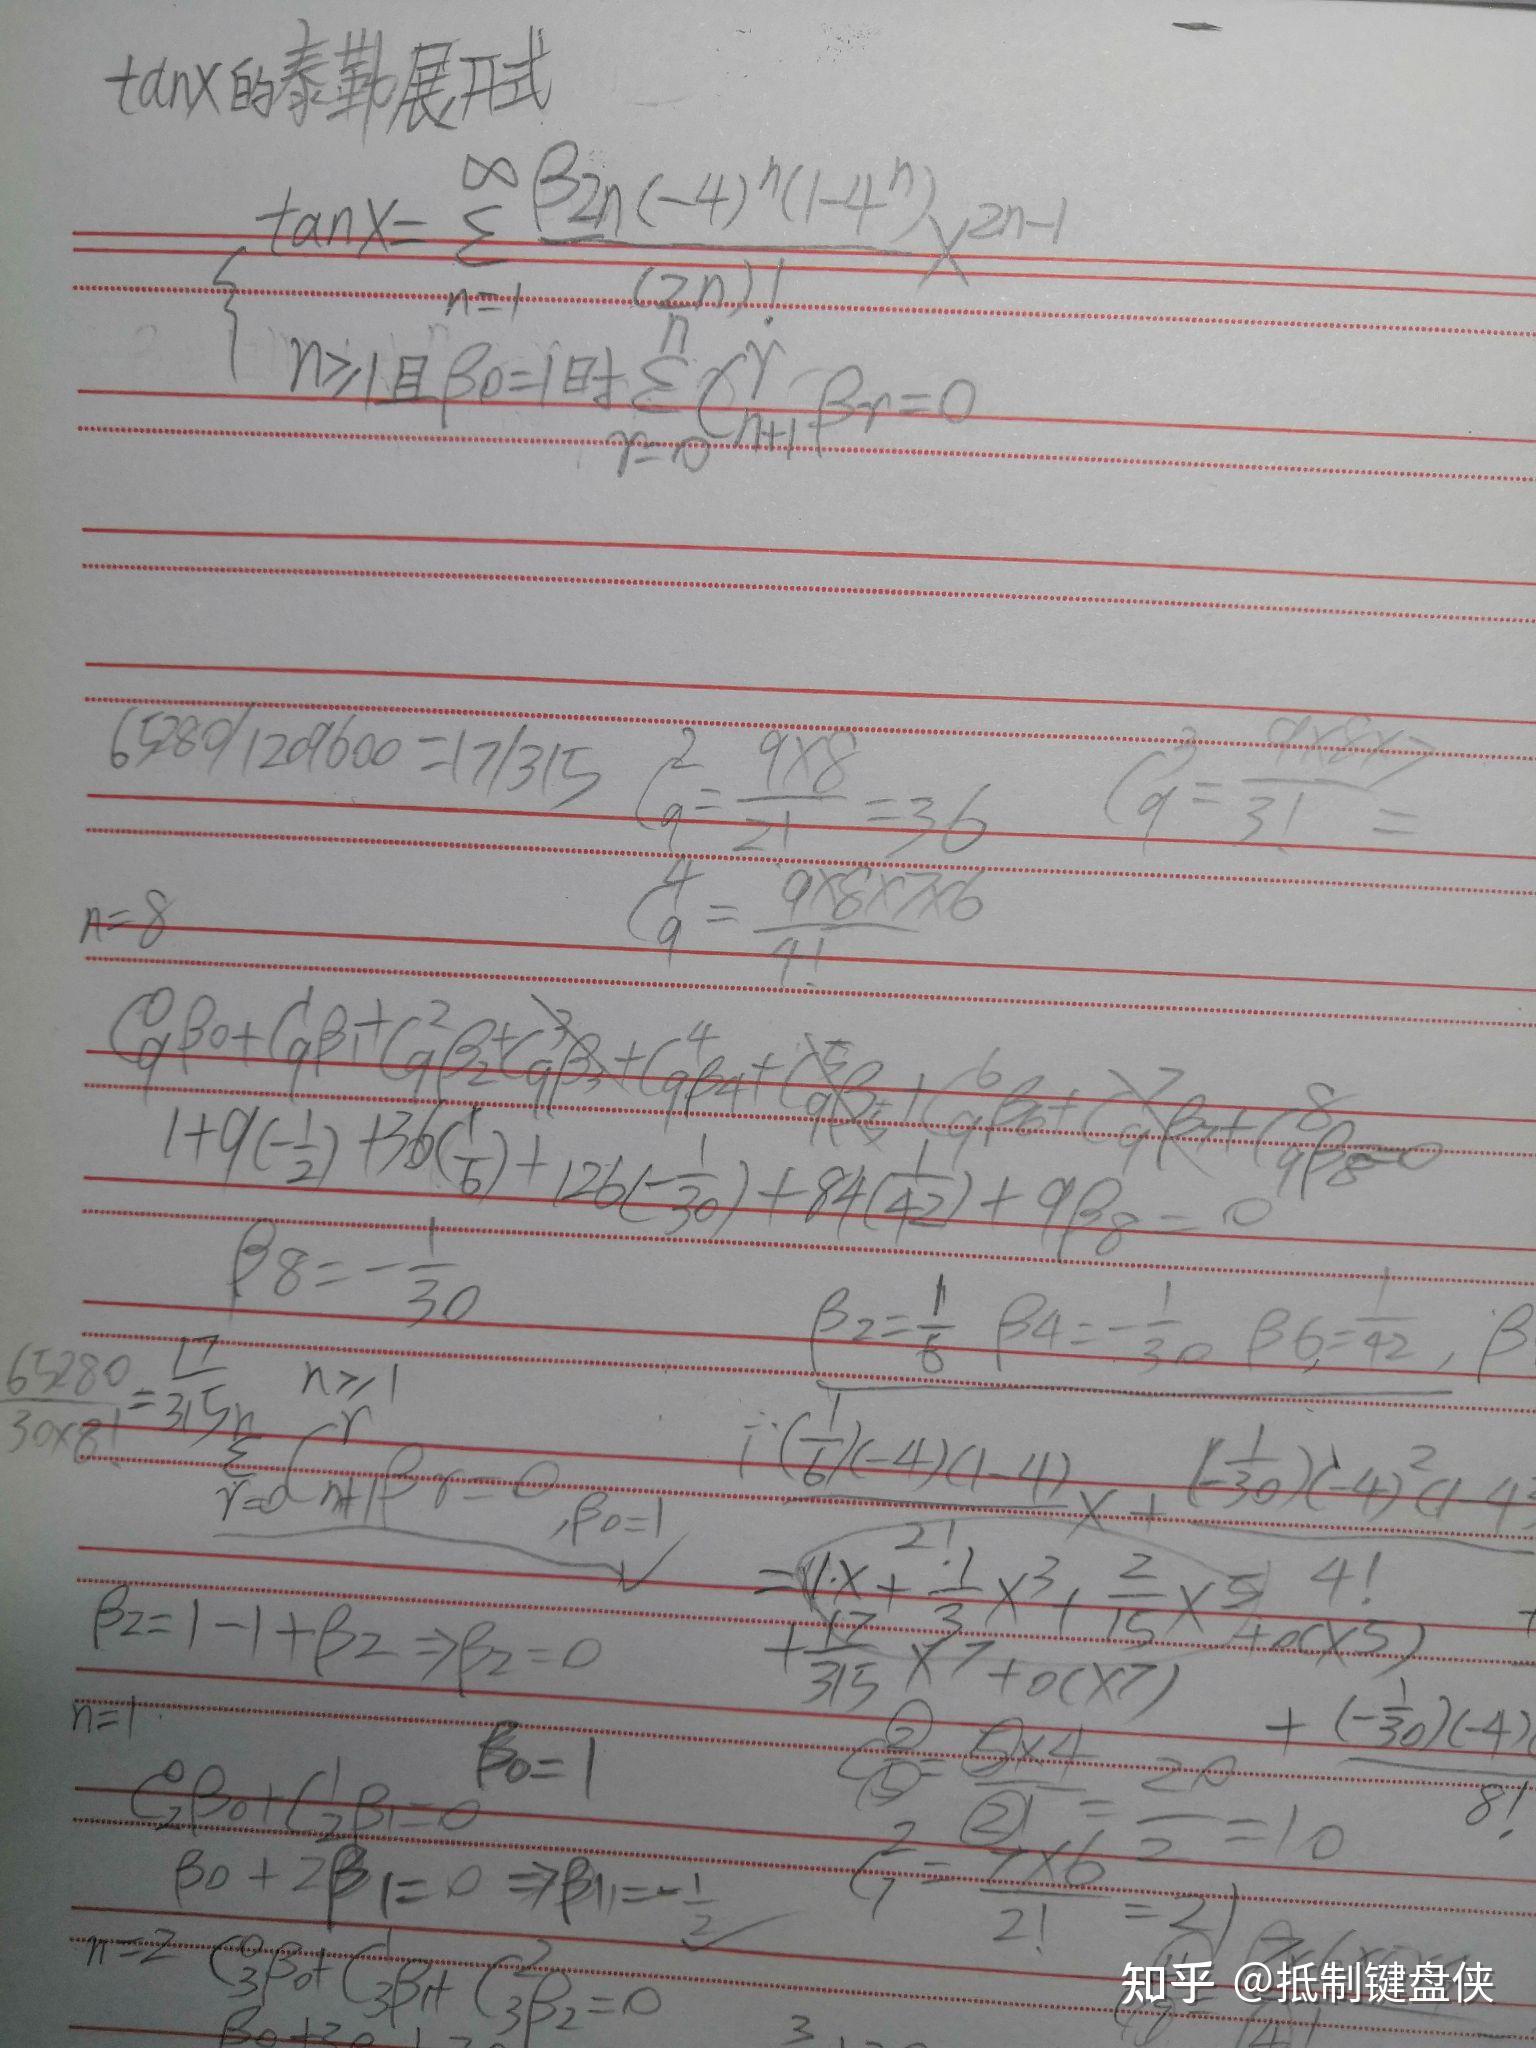 tanx的泰勒展开式
tanx=∑_{n=1}^{∞} \frac{β_{2n}(-4)^n(1-4^n)}{(2n)!} x^{2n-1}
n≥1且β_0=1时 ∑_{r=0}^{n} C_{n+1}^{r} β_r=0
65280/1209600=17/315 C_9^2=\frac{9×8}{2!}=36 C_9^3=\frac{9×8×7}{3!}=
C_9^4=\frac{9×8×7×6}{4!}
n=8
C_9^0β_0+C_9^1β_1+C_9^2β_2+C_9^3β_3+C_9^4β_4+C_9^5β_5+C_9^6β_6+C_9^7β_7+C_9^8β_8=0
1+9(-\frac{1}{2})+36(\frac{1}{6})+126(-\frac{1}{30})+84(\frac{1}{42})+9β_8=0
β_8=-\frac{1}{30}
β_2=\frac{1}{6} β_4=-\frac{1}{30} β_6=\frac{1}{42}, β
\frac{65280}{30×8!}=\frac{17}{315} n≥1
∑_{r=0}^{n} C_{n+1}^{r} β_r=0, β_0=1
\frac{(\frac{1}{6})(-4)(1-4)}{2!}x+\frac{(-\frac{1}{30})(-4)^2(1-4^2}{4!}
=1·x+\frac{1}{3}x^3+\frac{2}{15}x^5+o(x^5)
+\frac{17}{315}x^7+o(x^7)
+\frac{(-\frac{1}{30})(-4)}{8!}
β_2=1-1+β_2⇒β_2=0
n=1 β_0=1
C_2^0β_0+C_2^1β_1=0
β_0+2β_1=0⇒β_1=-\frac{1}{2}
C_5^2=\frac{5×4}{2!}=\frac{20}{2}=10
C_7^2=\frac{7×6}{2!}=21
n=2 C_3^0β_0+C_3^1β_1+C_3^2β_2=0
知乎 @抵制键盘侠